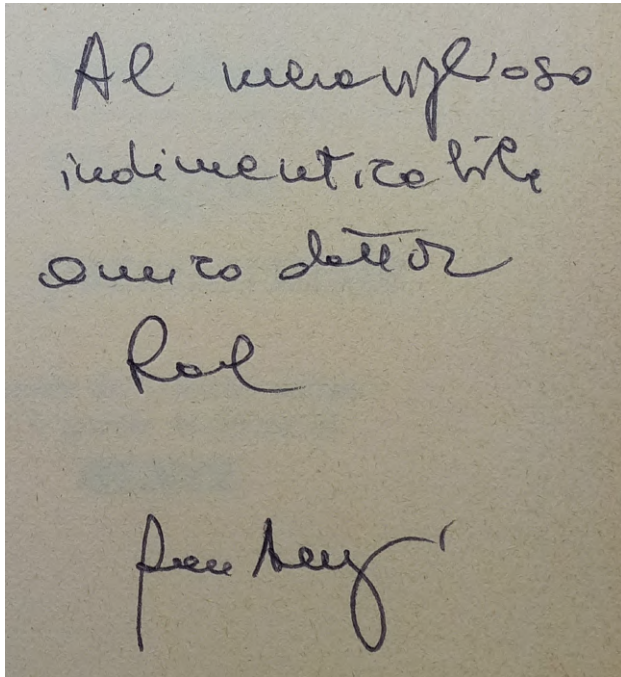 Al meraviglioso
indimenticabile
amico dottor
Rol